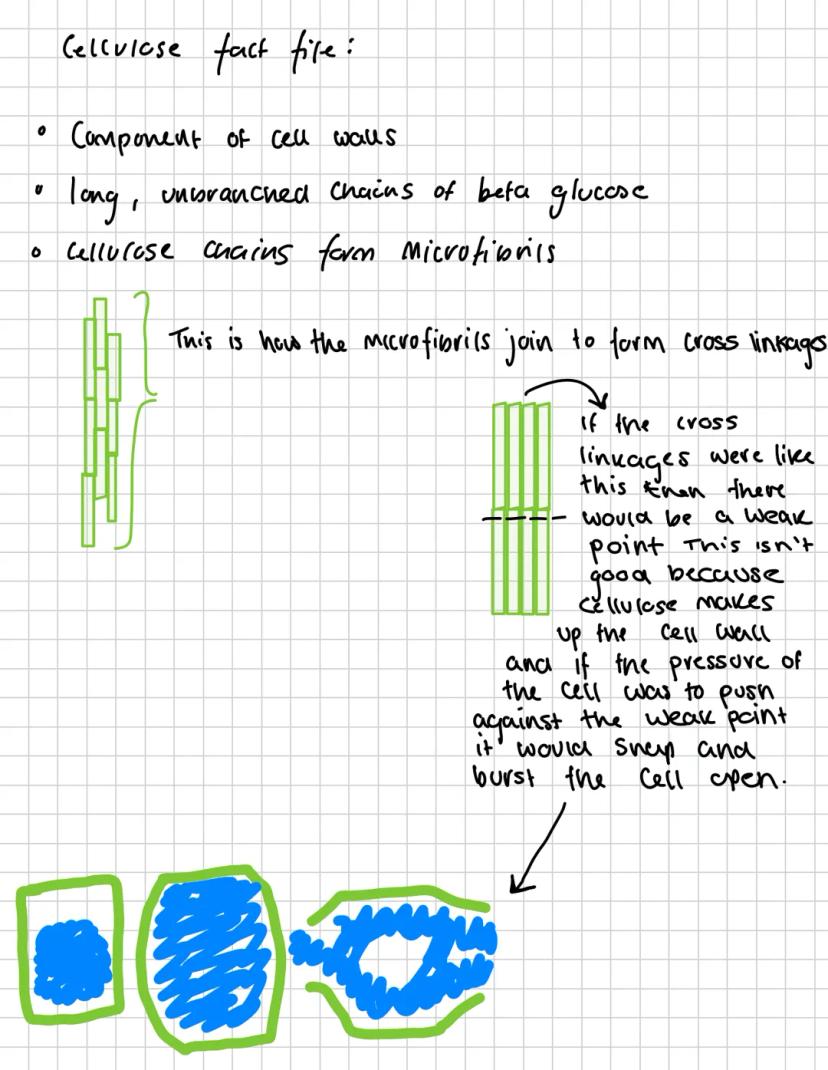 Cellulose fact file:
• Component of cell walls
• long, unbranched chains of beta glucose
• Cellulose chains form Microfibrils
This is how the microfibrils join to form cross linkages
if the cross
linkages were like
this then there
would be a weak
point This isn't
good because
cellulose makes
up the cell wall
and if the pressure of
the cell was to push
against the weak point
it would snap and
burst the cell open.